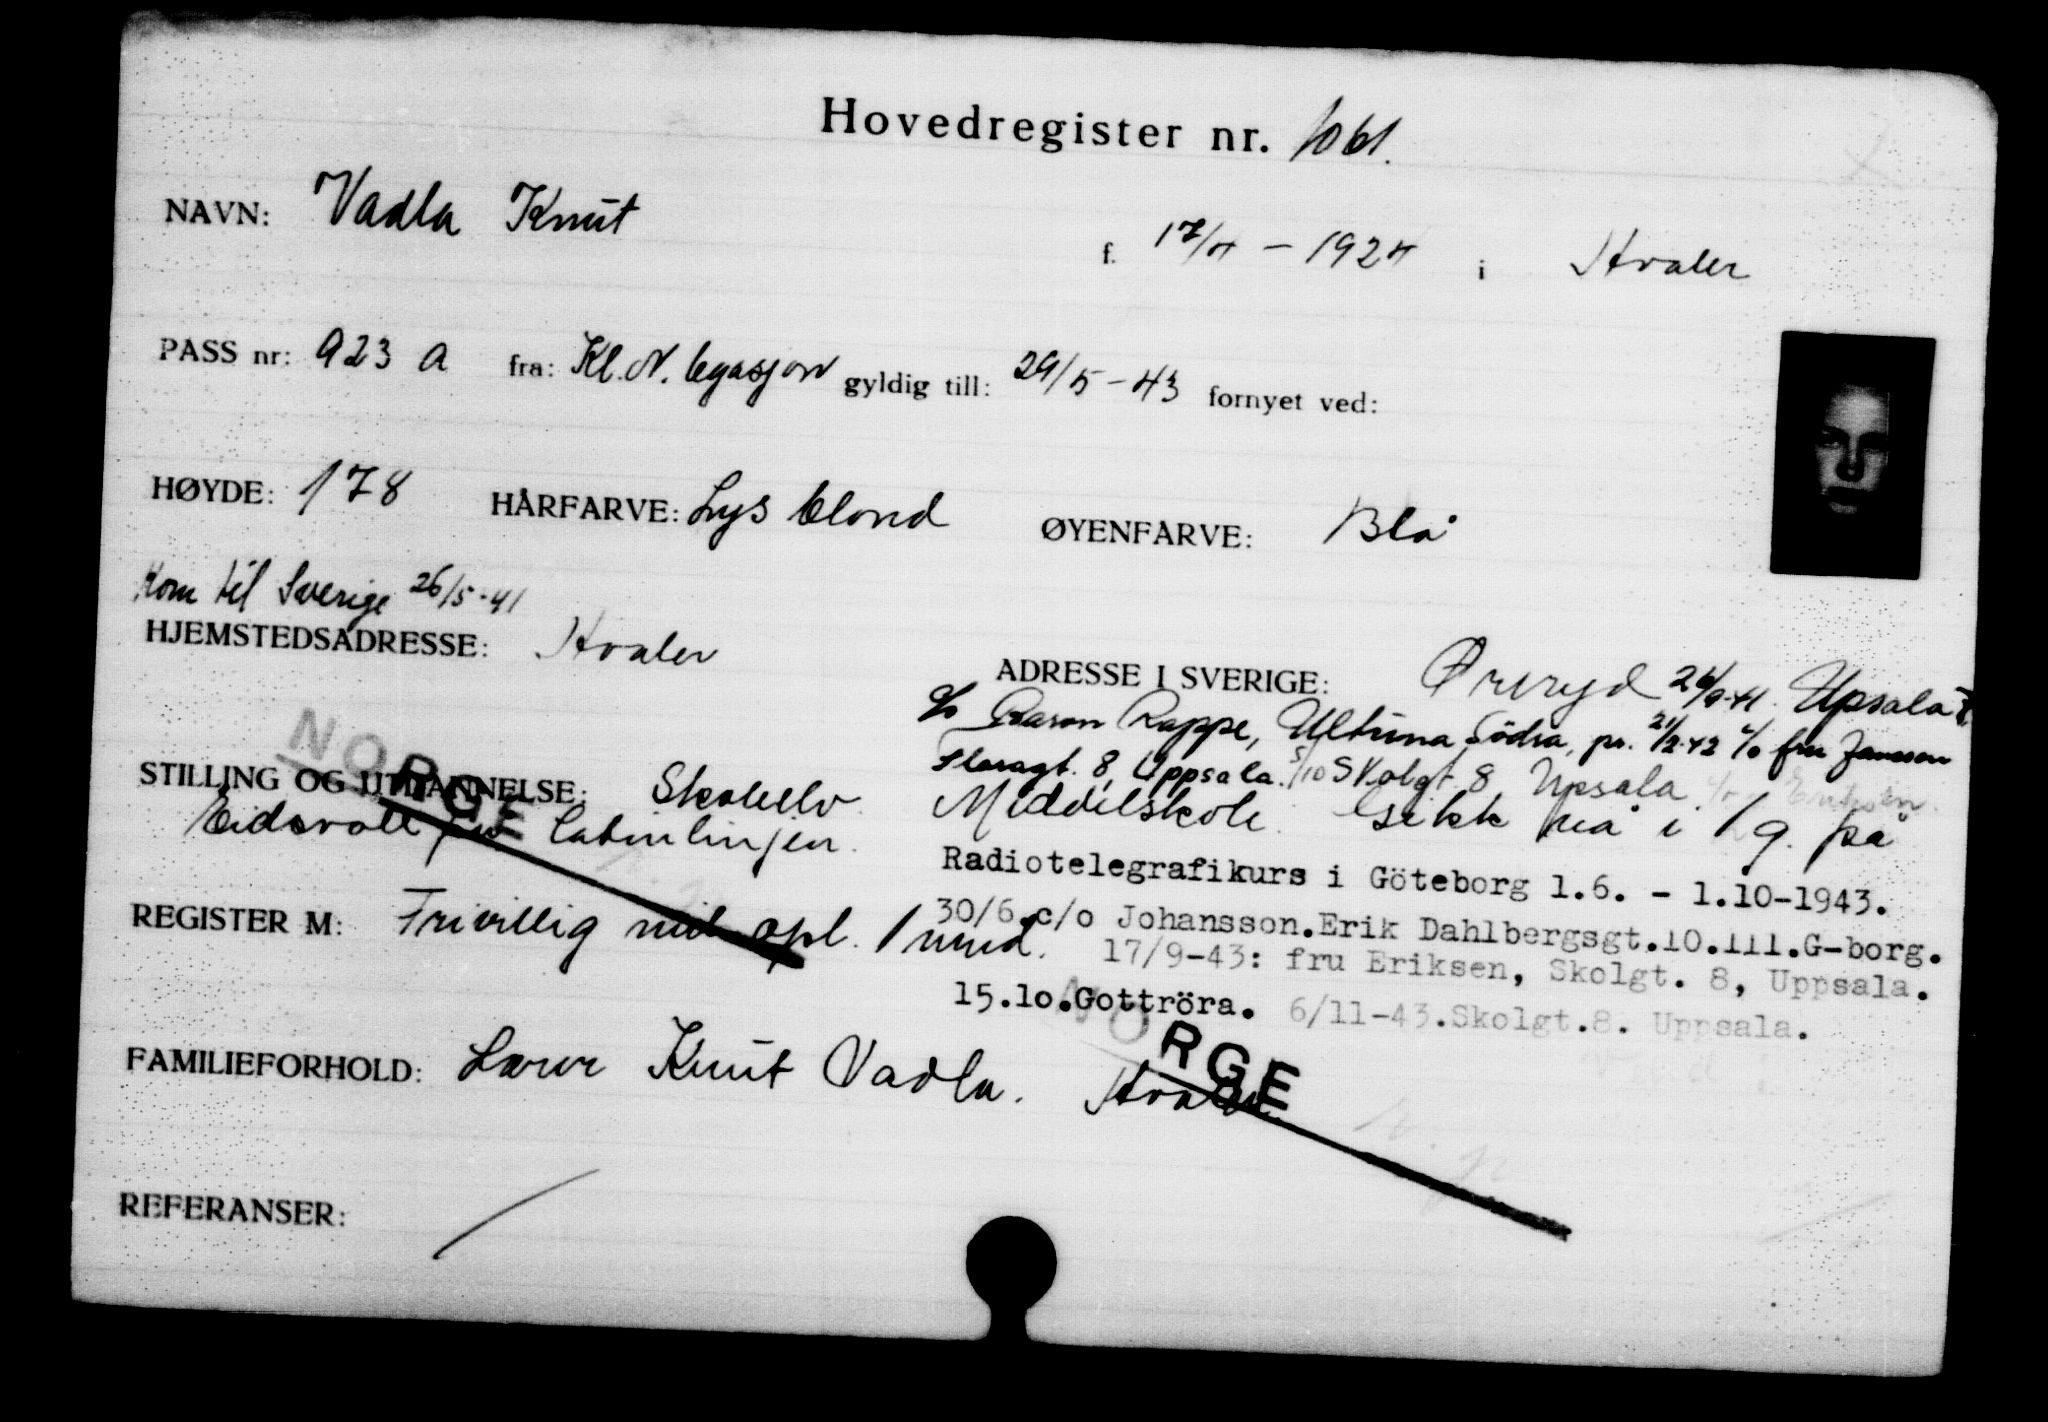 Hovedregister nr. 1061.
NAVN: Vadla Knut f. 17/4 - 1924 i Hvaler
PASS nr: 923 A fra: Kl. N. legasjon gyldig till: 29/5-43 fornyet ved:
HØYDE: 178 HÅRFARVE: Lys blond ØYENFARVE: Blå
Kom til Sverige 26/5-41
HJEMSTEDSADRESSE: Hvaler ADRESSE I SVERIGE: Øreryd 26/9-41. Upsala
c/o Baron Rappe, Ultuna Södra, pr. 21/2-42 c/o fru Jansson
Floragt. 8, Uppsala. 5/10 Skolgt. 8 Upsala. c/o Eriksen.
NORGE
STILLING OG UTDANNELSE: Skoleelv. Middelskole. Gikk nå i 1 g. på
Eidsvoll latinlinjen.
Radiotelegrafikurs i Göteborg 1.6. - 1.10-1943.
REGISTER M: Frivillig mil. opl. 1 mnd.
30/6.c/o Johansson.Erik Dahlbergsgt.10.111.G-borg.
17/9-43: fru Eriksen, Skolgt. 8, Uppsala.
15.10.Gottröra. 6/11-43.Skolgt.8. Uppsala.
NORGE
FAMILIEFORHOLD: Lærer Knut Vadla. Hvaler.
REFERANSER: